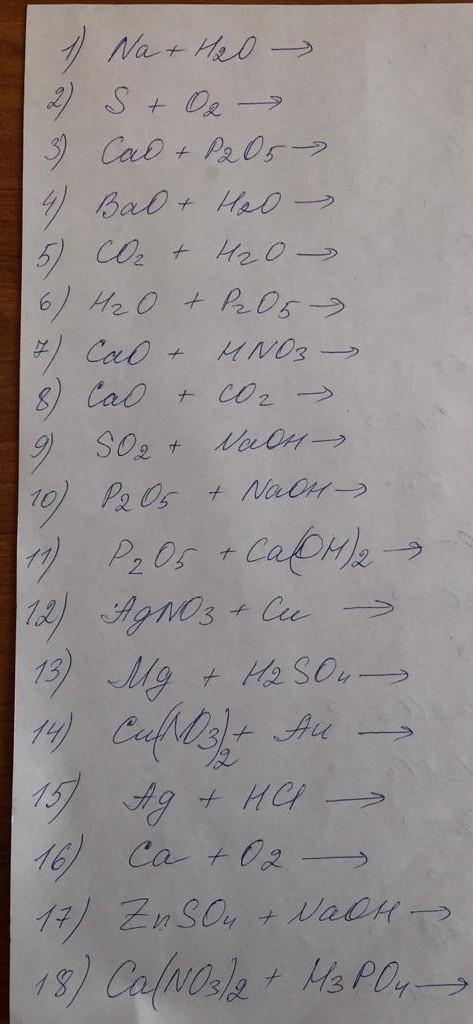 1) Na + H2O →
2) S + O2 →
3) CaO + P2O5 →
4) BaO + H2O →
5) CO2 + H2O →
6) H2O + P2O5 →
7) CaO + HNO3 →
8) CaO + CO2 →
9) SO2 + NaOH →
10) P2O5 + NaOH →
11) P2O5 + Ca(OH)2 →
12) AgNO3 + Cu →
13) Mg + H2SO4 →
14) Cu(NO3)2 + Au →
15) Ag + HCl →
16) Ca + O2 →
17) ZnSO4 + NaOH →
18) Ca(NO3)2 + H3PO4 →